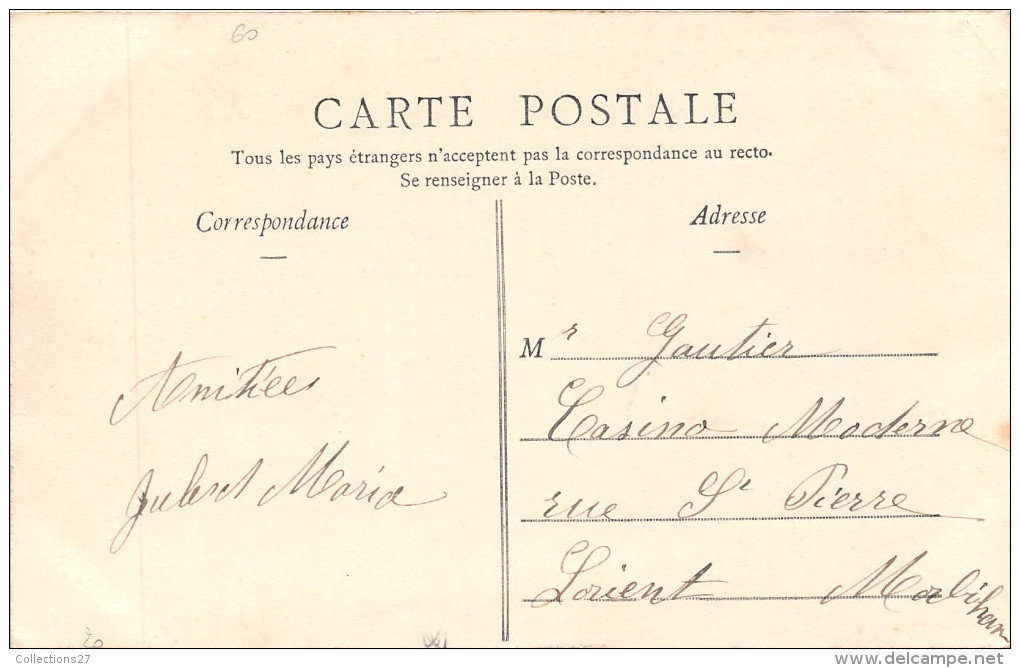 60
CARTE POSTALE
Tous les pays étrangers n'acceptent pas la correspondance au recto.
Se renseigner à la Poste.
Correspondance
Amitiées
Jules et Maria
Adresse
Mr Gautier
Casino Moderne
rue St Pierre
Lorient Morbihan
20
Collections27
delcampe.net